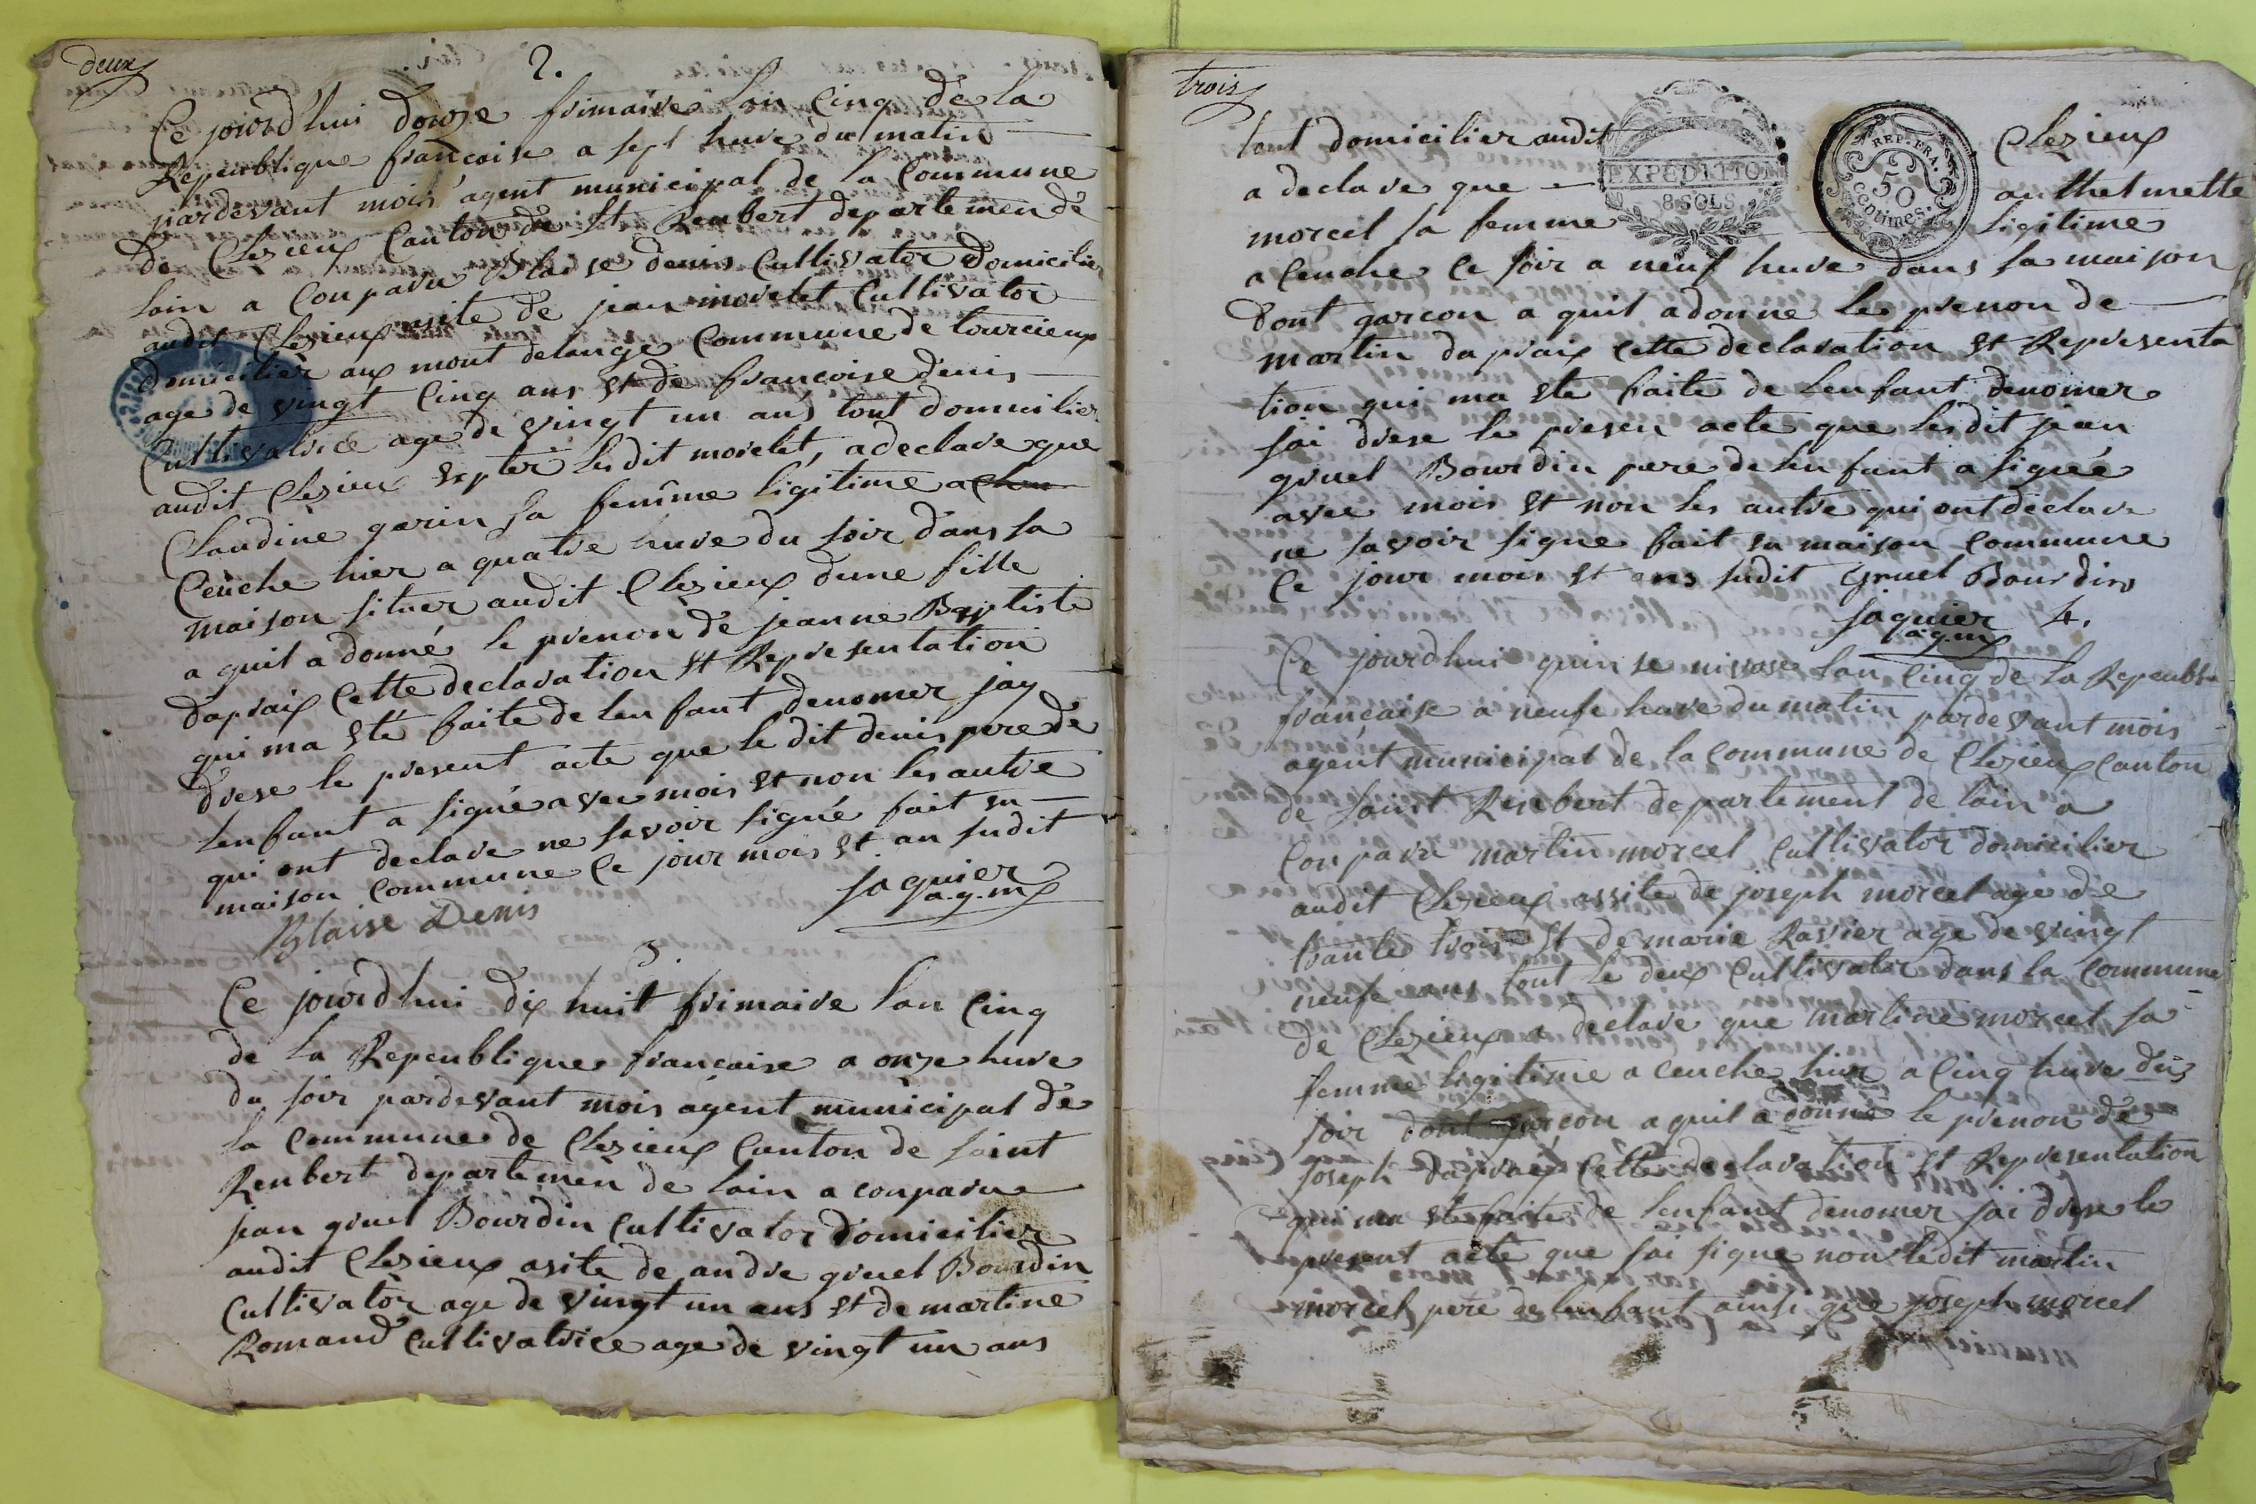 deux
2.
Ce jourd'hui douze frimaire lan Cinq de la
Republique françoise a sept heure du matin
pardevant mois agent municipal de la Commune
de Clezieux Canton de St Renbert departemen de
lain a Conparu Blaise denis Cultivator domicilie
audit Clezieux asite de jean morelet Cultivator
domicilier aux mont delange Commune de tourcieux
age de vingt Cinq ans et de francoise denis
Cultivatrice age de vingt un ans tout domicilier
audit Clezieux expter ledit morelet, a declare que
Claudine garin sa femme ligitime a
Ceuche hier a quatre heure du soir dans sa
maison situer audit Clezieux dune fille
a quil a donné le prenon de jeanne Baptiste
dapraix Cette declaration et Representation
qui ma eté faite de lenfant denomer jay
drese le present acte que le dit denis pere de
lenfant a signé avec mois et non les autre
qui ont declare ne savoir signé fait en
maison Commune Ce jour mois et an sudit
Blaise Denis
jaquier
a.g.m
3.
Ce jourd'hui dix huit frimaire lan Cinq
de la Republique française a onze heure
du soir pardevant mois agent municipal de
la Commune de Clezieux Canton de saint
Renbert departemen de lain a conparu
jean gruel Bourdin Cultivator domicilier
audit Clezieux asite de andre gruel Bourdin
Cultivator age de vingt un ans et de martine
Romand Cultivatrice age de vingt un ans
trois
tout domicilier audit Clezieux
a declare que anthelmette
morcel sa femme ligitime
a Ceuche Ce soir a neuf heure dans sa maison
dont garcon a quil a donne le prenon de
martin dapraix cette declaration et Representa
tion qui ma ete faite de lenfant denomer
jai drese le presen acte que ledit jean
gruel Bourdin pere de lenfant a signée
avec mois et non les autre qui ont declare
ne savoir signe fait en maison Commune
Ce jour mois et ans sudit Gruel Bourdin
jaquier
a.g.m
4.
Ce jourdhui quinse nivose lan Cinq de la Republi
française a neufe heure du matin pardevant mois
agent municipal de la Commune de Clezieux Canton
de saint Renbert departement de lain a
Conparu martin morcel Cultivator domicilier
audit Clezieux assite de joseph morcel age de
trante trois et de marie Ravier age de vingt
neufe ans tout le deux Cultivator dans la Commune
de Clezieux a declare que martine morcel sa
femme ligitime a ceuche hier a Cinq heure du
soir dont garcon a quil a donné le prenon de
joseph daprais Cette declaration et Representation
qui ma ete faite de lenfant denomer jai drese le
present acte que jai signe non ledit martin
morcel pere de lenfant ainsi que joseph morcel
EXPEDITION
8 SOLS
REP. FRA.
50
Centimes.